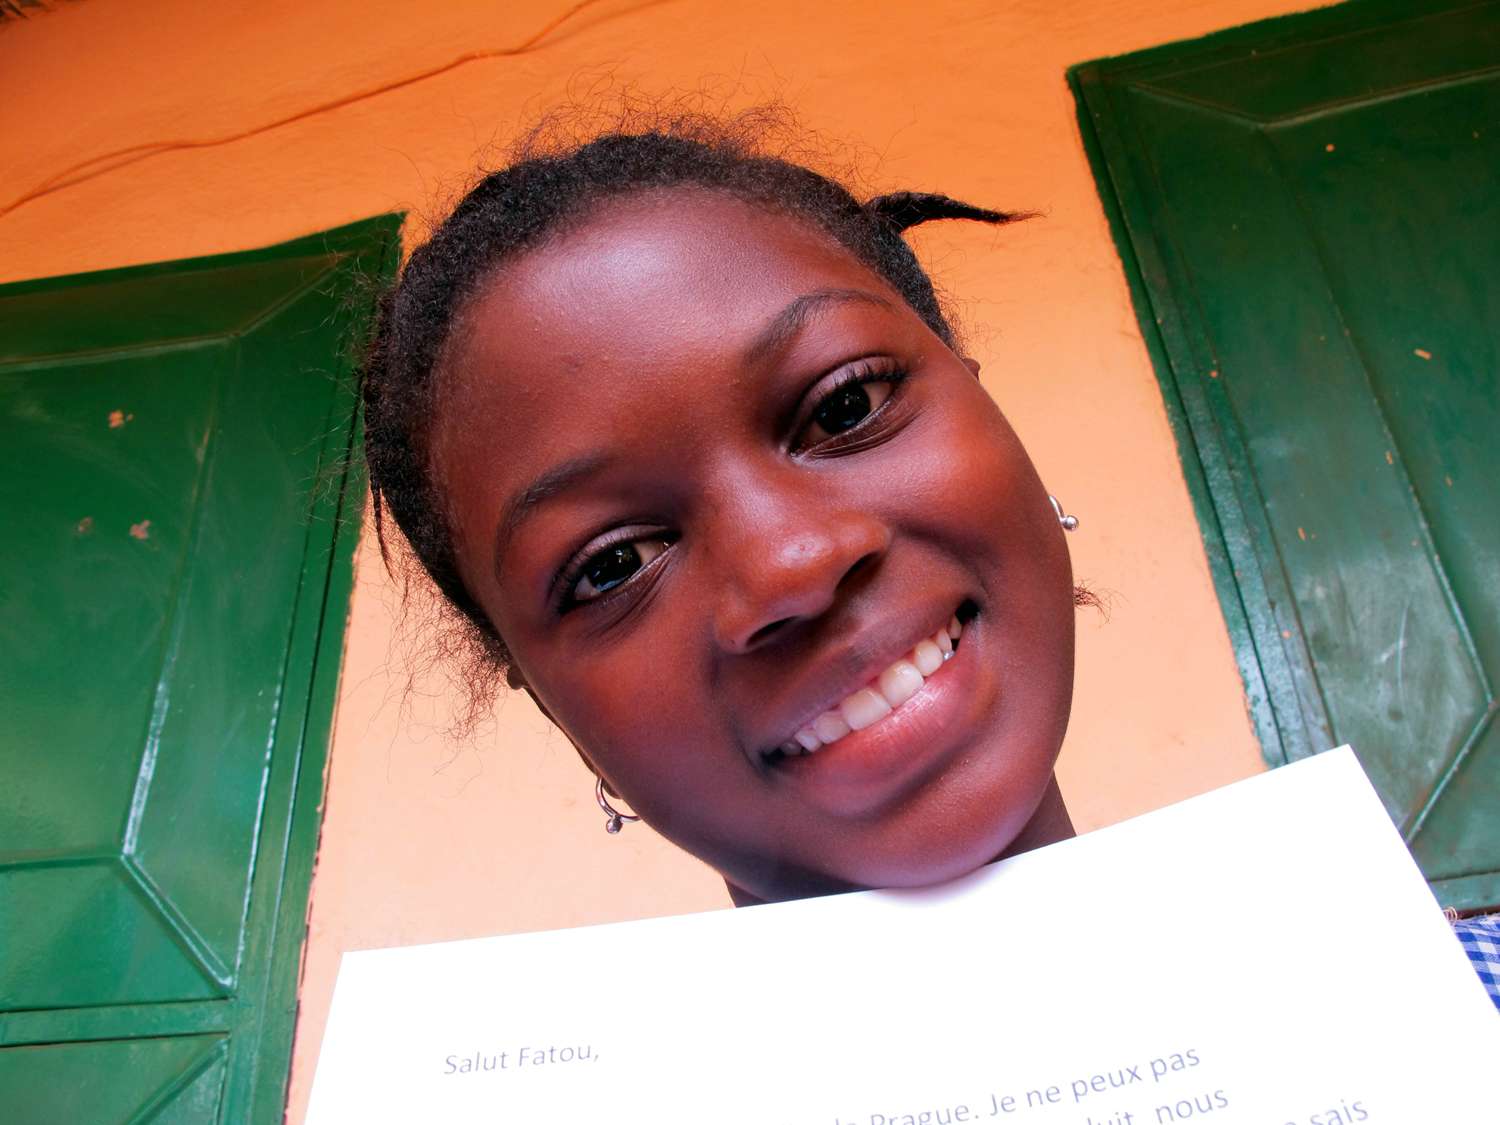 Salut Fatou,
Prague. Je ne peux pas
nous
sais